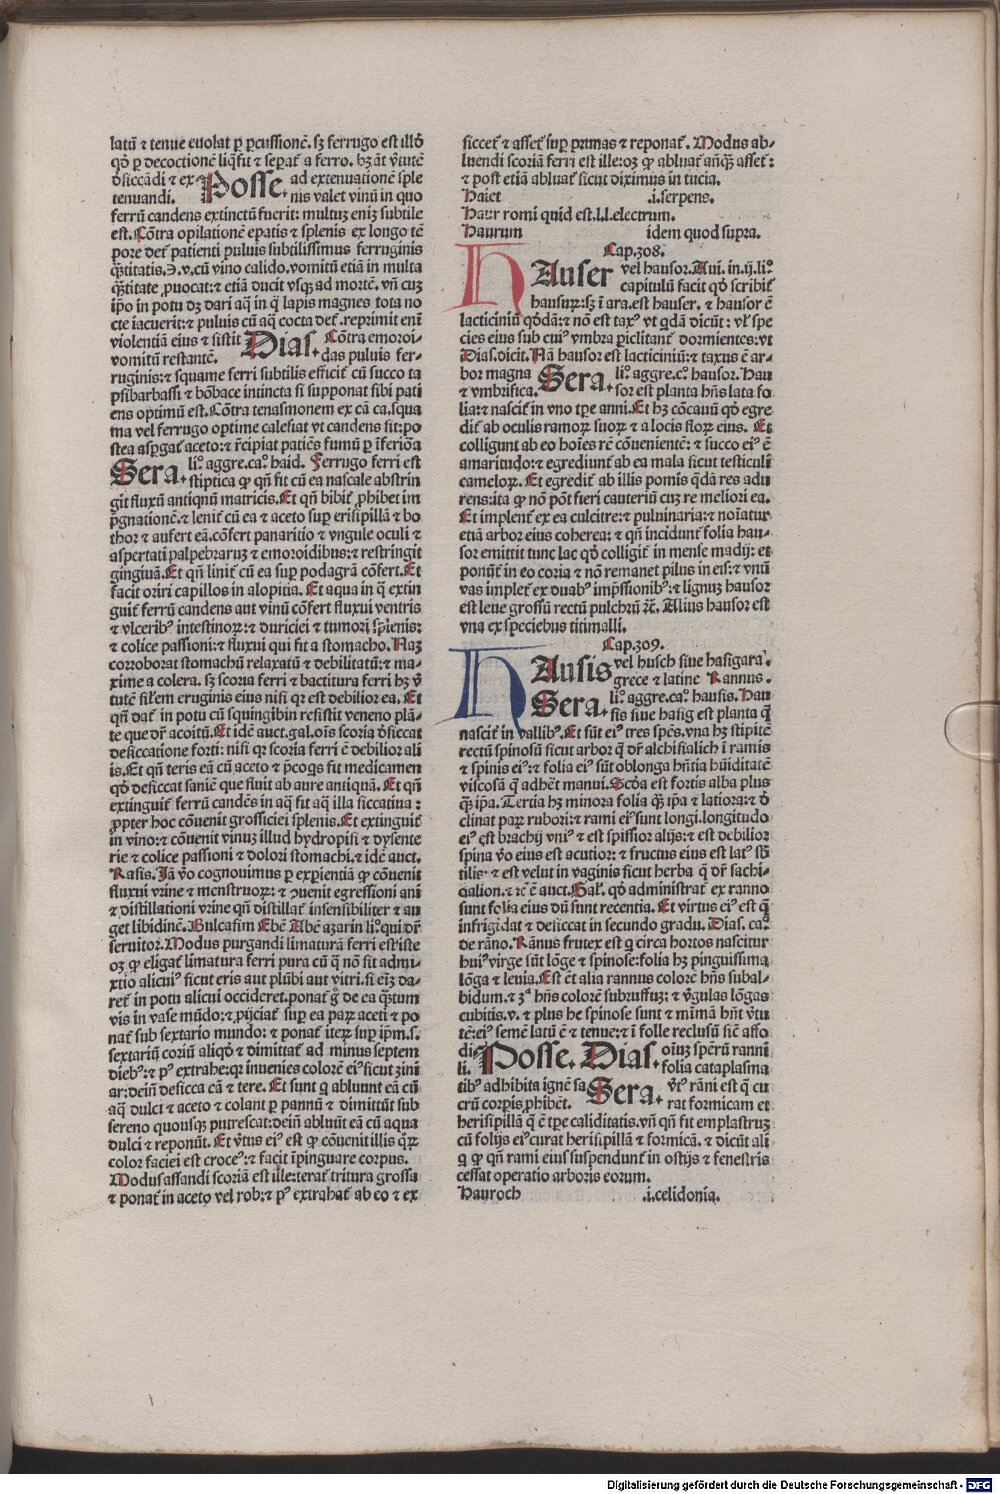 latū ⁊ tenue euolat ꝑ ꝑcussionē. sꝫ ferrugo est illḋ
qḋ ꝑ decoctionē liq̄fit ⁊ sepat̄ a ferro. hꝫ āt v̄tutē
ḋsiccādi ⁊ ex- Posse. ad extenuationē sple
tenuandi. nis valet vinū in quo
ferrū candens extinctū fuerit: multuꝫ eniꝫ subtile
est. Cōtra opilationē epatis ⁊ splenis ex longo tē
pore det̄ patienti puluis subtilissimus ferruginis
q̄ꝫtitatis. ℈. v. cū vino calido. vomitū etiā in multa
q̄ꝫtitate ꝓuocat: ⁊ etiā ducit vsqꝫ ad mortē. vn̄ cuꝫ
ip̄o in potu dꝫ dari aq̄ in q̄ lapis magnes tota no
cte iacuerit: ⁊ puluis cū aq̄ cocta det̄. reprimit eni
violentiā eius ⁊ sistit Dias. Cōtra emoroi-
vomitū restantē. das puluis fer-
ruginis: ⁊ squame ferri subtilis efficit̄ cū succo ta
psibarbassi ⁊ bōbace intincta si supponat̄ sibi pati
ens optimū est. Cōtra tenasmonem ex cā ca. squa
ma vel ferrugo optime calefiat vt candens fit: po
stea asꝑgat̄ aceto: ⁊ r̄cipiat patiēs fumū ꝑ īferiōa
Sera. li.º aggre. ca.º haid. Ferrugo ferri est
stiptica ꝙ qn̄ fit cū ea nascale abstrin
git fluxū antiqnū matricis. Et qn̄ bibit̄ ꝓhibet im
p̄gnationē. ⁊ lenit̄ cū ea ⁊ aceto suꝑ erisipillā ⁊ bo
thor ⁊ aufert eā. cōfert panaritio ⁊ vngule oculi ⁊
aspertati palpebraruꝫ ⁊ emoroidibus: ⁊ restringit
gingiuā. Et qn̄ linit̄ cū ea suꝑ podagrā cōfert. Et
facit oriri capillos in alopitia. Et aqua in q̄ extin
guit̄ ferrū candens aut vinū cōfert fluxui ventris
⁊ vlceribꝰ intestinoꝝ: ⁊ duriciei ⁊ tumori splenis:
⁊ colice passioni: ⁊ fluxui qui fit a stomacho. Naꝫ
corroborat stomachū relaxatū ⁊ debilitatū: ⁊ ma-
xime a colera. sꝫ scoria ferri ⁊ bactitura ferri hꝫ v̄
tutē sil̄em eruginis eius nisi qꝛ est debilior ea. Et
qn̄ dat̄ in potu cū squingibin resistit veneno plā-
te que dr̄ acoitū. Et idē auct. gal. oīs scoria ḋsiccat
desiccatione forti: nisi qꝛ scoria ferri ē debilior ali
is. Et qn̄ teris eā cū aceto ⁊ p̄coq̄s fit medicamen
qḋ desiccat saniē que fluit ab aure antiquā. Et qn̄
extinguit̄ ferrū candēs in aq̄ fit aq̄ illa siccatiua:
ꝓpter hoc cōuenit grossiciei splenis. Et extinguit̄
in vino: ⁊ cōuenit vinuꝫ illud hydropisi ⁊ dysente
rie ⁊ colice passioni ⁊ dolori stomachi. ⁊ idē auct.
Rasis. Iā v̄o cognouimus ꝑ experientiā ꝙ cōuenit
fluxui vrine ⁊ menstruoꝝ: ⁊ ꝯuenit egressioni ani
⁊ distillationi vrine qn̄ distillat̄ insensibiliter ⁊ au
get libidinē. Bulcasim Ebē Abē azarin li.º qui dr̄
seruitor. Modus purgandi limaturā ferri est iste
oꝫ ꝙ eligat̄ limatura ferri pura cū q̄ nō sit admi-
xtio alicuiꝰ sicut eris aut plūbi aut vitri. si eiꝫ da-
ret̄ in potu alicui occideret. ponat̄ gͦ de ea q̄ꝫtum
vis in vase mūdo: ⁊ ꝓijciat̄ suꝑ ea paꝝ aceti ⁊ po
nat̄ sub sextario mundo: ⁊ ponat̄ iteꝝ suꝑ ip̄m. s.
sextariū coriū aliqḋ ⁊ dimittat̄ ad minus septem
diebꝰ: ⁊ pꝰ extrahe: qꝛ inuenies colorē eiꝰ sicut zini
ar: deiū desicca eā ⁊ tere. Et sunt q̄ abluunt eā cū
aq̄ dulci ⁊ aceto ⁊ colant ꝑ pannū ⁊ dimittūt sub
sereno quousqꝫ putrescat: deiū abluūt eā cū aqua
dulci ⁊ reponūt. Et v̄tus eiꝰ est ꝙ cōuenit illis q̄ꝝ
color faciei est croceꝰ: ⁊ facit īpinguare corpus.
Modus assandi scoriā est ille: terat̄ tritura grossa
⁊ ponat̄ in aceto vel rob: ⁊ pꝰ extrahat̄ ab eo ⁊ ex
siccet̄ ⁊ asset̄ suꝑ prunas ⁊ reponat̄. Modus ab-
luendi scoriā ferri est ille: oꝫ ꝙ abluat̄ an̄q̄ꝫ asset̄:
⁊ post etiā abluat̄ sicut diximus in tucia.
Haiet .i. serpens.
Haur romi quid est. l. l. electrum.
Haurum idem quod supra.
Cap. 308.
HAuser vel hausor. Aui. in. ij. li.º
capitulū facit qḋ scribit̄
hausuꝝ: sꝫ ī ara. est hauser. ⁊ hausor ē
lacticiniū qḋdā: ⁊ nō est taxꝰ vt q̄dā dicūt: vl̓ spe
cies eius sub cuiꝰ vmbra ꝑiclitant̄ dormientes: vt
Dias. dicit. Nā hausor est lacticiniū: ⁊ taxus ē ar-
bor magna Sera. li.º aggre. c.º hausor. Hau
⁊ vmbrifica. sor est planta hn̄s lata fo
lia: ⁊ nascit̄ in vno tꝑe anni. Et hꝫ cōcauū qḋ egre
dit̄ ab oculis ramoꝝ suoꝝ ⁊ a locis floꝝ eius. Et
colligunt ab eo hoīes rē cōuenientē: ⁊ succo eiꝰ ē
amaritudo: ⁊ egrediunt̄ ab ea mala sicut testiculi
cameloꝝ. Et egredit̄ ab illis pomis q̄dā res adu
rens: ita ꝙ nō pōt fieri cauteriū cuꝫ re meliori ea.
Et implent̄ ex ea culcitre: ⁊ puluinaria: ⁊ noīatur
etiā arbor eius coherea: ⁊ qn̄ incidunt̄ folia hau-
sor emittit tunc lac qḋ colligit̄ in mense madij: et
ponūt̄ in eo coria ⁊ nō remanet pilus in eis: ⁊ vnū
vas implet̄ ex duabꝰ imp̄ssionibꝰ: ⁊ lignuꝫ hausor
est leue grossū rectū pulchrū ⁊c̄. Alius hausor est
vna ex speciebus titimalli.
Cap. 309.
HAusis vel husch siue hasigara.
grece ⁊ latine Rannus.
Sera. li.º aggre. ca.º hausis. Hau
sis siue hasig est planta q̄
nascit̄ in vallibꝰ. Et sūt eiꝰ tres spēs. vna hꝫ stipitē
rectū spinosū sicut arbor q̄ dr̄ alchisialich ī ramis
⁊ spinis eiꝰ: ⁊ folia eiꝰ sūt oblonga hn̄tia hūiditatē
viscosā q̄ adhēt manui. Scḋa est fortis alba plus
q̄ꝫ ip̄a. Tertia hꝫ minora folia q̄ꝫ ip̄a ⁊ latiora: ⁊ ḋ
clinat paꝝ rubori: ⁊ rami eiꝰ sunt longi. longitudo
eiꝰ est brachij vniꝰ ⁊ est spissior alijs: ⁊ est debilior
spina v̄o eius est acutior: ⁊ fructus eius est latꝰ sb̄
tilis: ⁊ est velut in vaginis sicut herba q̄ dr̄ sachi-
calion. ⁊ id ē auct. Gal. qḋ administrat̄ ex ranno
sunt folia eius dū sunt recentia. Et virtus eiꝰ est q̄
infrigidat ⁊ desiccat in secundo gradu. Dias. ca.º
de rāno. Rānus frutex est q̄ circa hortos nascitur
huiꝰ virge sūt lōge ⁊ spinose: folia hꝫ pinguissima
lōga ⁊ leuia. Est ēt alia rannus colorē hn̄s subal-
bidum. ⁊ 3ª hn̄s colorē subruffuꝫ: ⁊ v̄gulas lōgas
cubitis. v. ⁊ plus he spinose sunt ⁊ mīmā hn̄t v̄tu
tē: eiꝰ semē latū ē ⁊ tenue: ⁊ ī folle reclusū sic̄ asfo
di- Posse. Dias. oīuꝫ spērū ranni
li. folia cataplasma
tibꝰ adhibita ignē sa Sera. v̄tꝰ rāni est q̄ cu
crū corpis ꝓhibēt. rat formicam et
herisipillā q̄ ē tꝑe caliditatis. vn̄ qn̄ fit emplastruꝫ
cū folijs eiꝰ curat herisipillā ⁊ formicā. ⁊ dicūt ali
q̄ ꝙ qn̄ rami eius suspendunt̄ in ostijs ⁊ fenestris
cessat operatio arboris eorum.
Hauroch .i. celidonia.
Digitalisierung gefördert durch die Deutsche Forschungsgemeinschaft - DFG